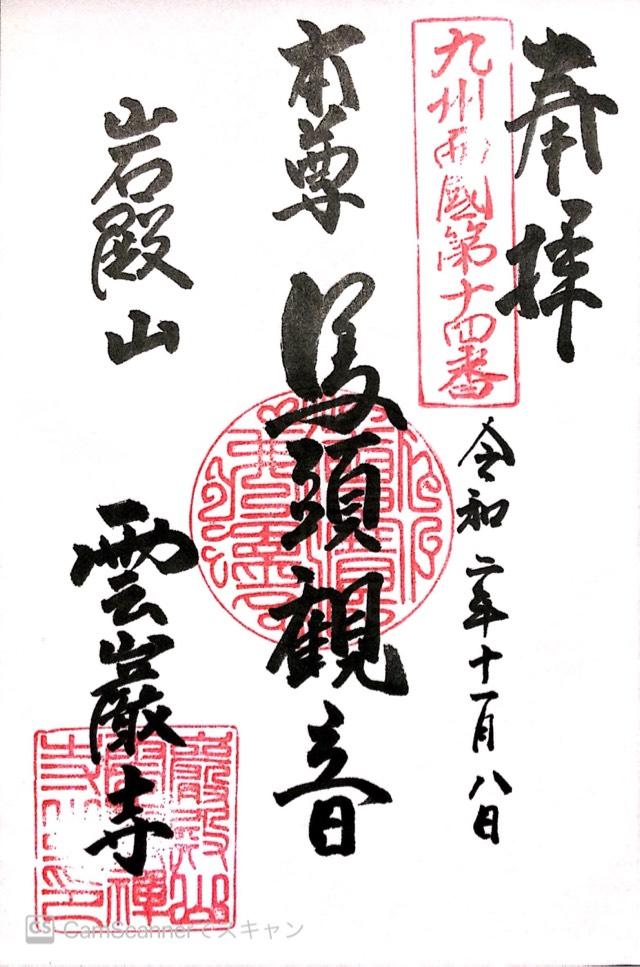 奉拝
九州西國第十四番
令和二年十一月八日
本尊 馬頭觀音
岩殿山
雲巌寺
CamScannerでスキャン